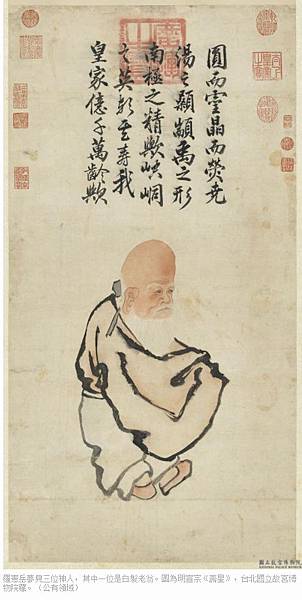 圓而靈晶而熒堯
湯之顙顓禹之形
南極之精歟崆峒
之英歟 壽我
皇家億千萬齡歟
國立故宮博物院
羅憲岳夢見三位神人，其中一位是白髮老翁。圖為明宣宗《壽星》，台北國立故宮博
物院藏。（公有領域）